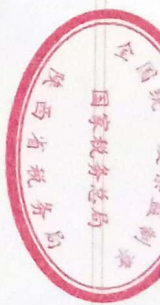 全国统一发票监制章
国家税务总局
陕西省税务局